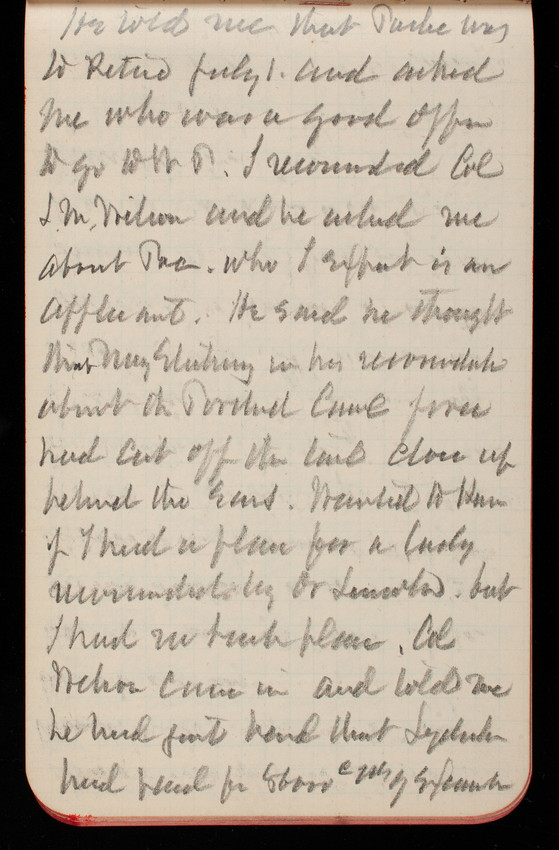 He told me that Parke was
to Retire July 1. and asked
me who was a good officer
to go to W P. I recommended Col
J.M. Wilson and he asked me
about Poe. who I expect is an
applicant. He said he thought
that in his recommendation
about the Portland Canal
had cut off the tail close up
behind the Ears. Wanted to know
if I had a place for a lady
recommended by Dr Lincoln. but
I had no such place. Col
Wilson came in and told me
he had just heard that
had paid for 8000 c yds of